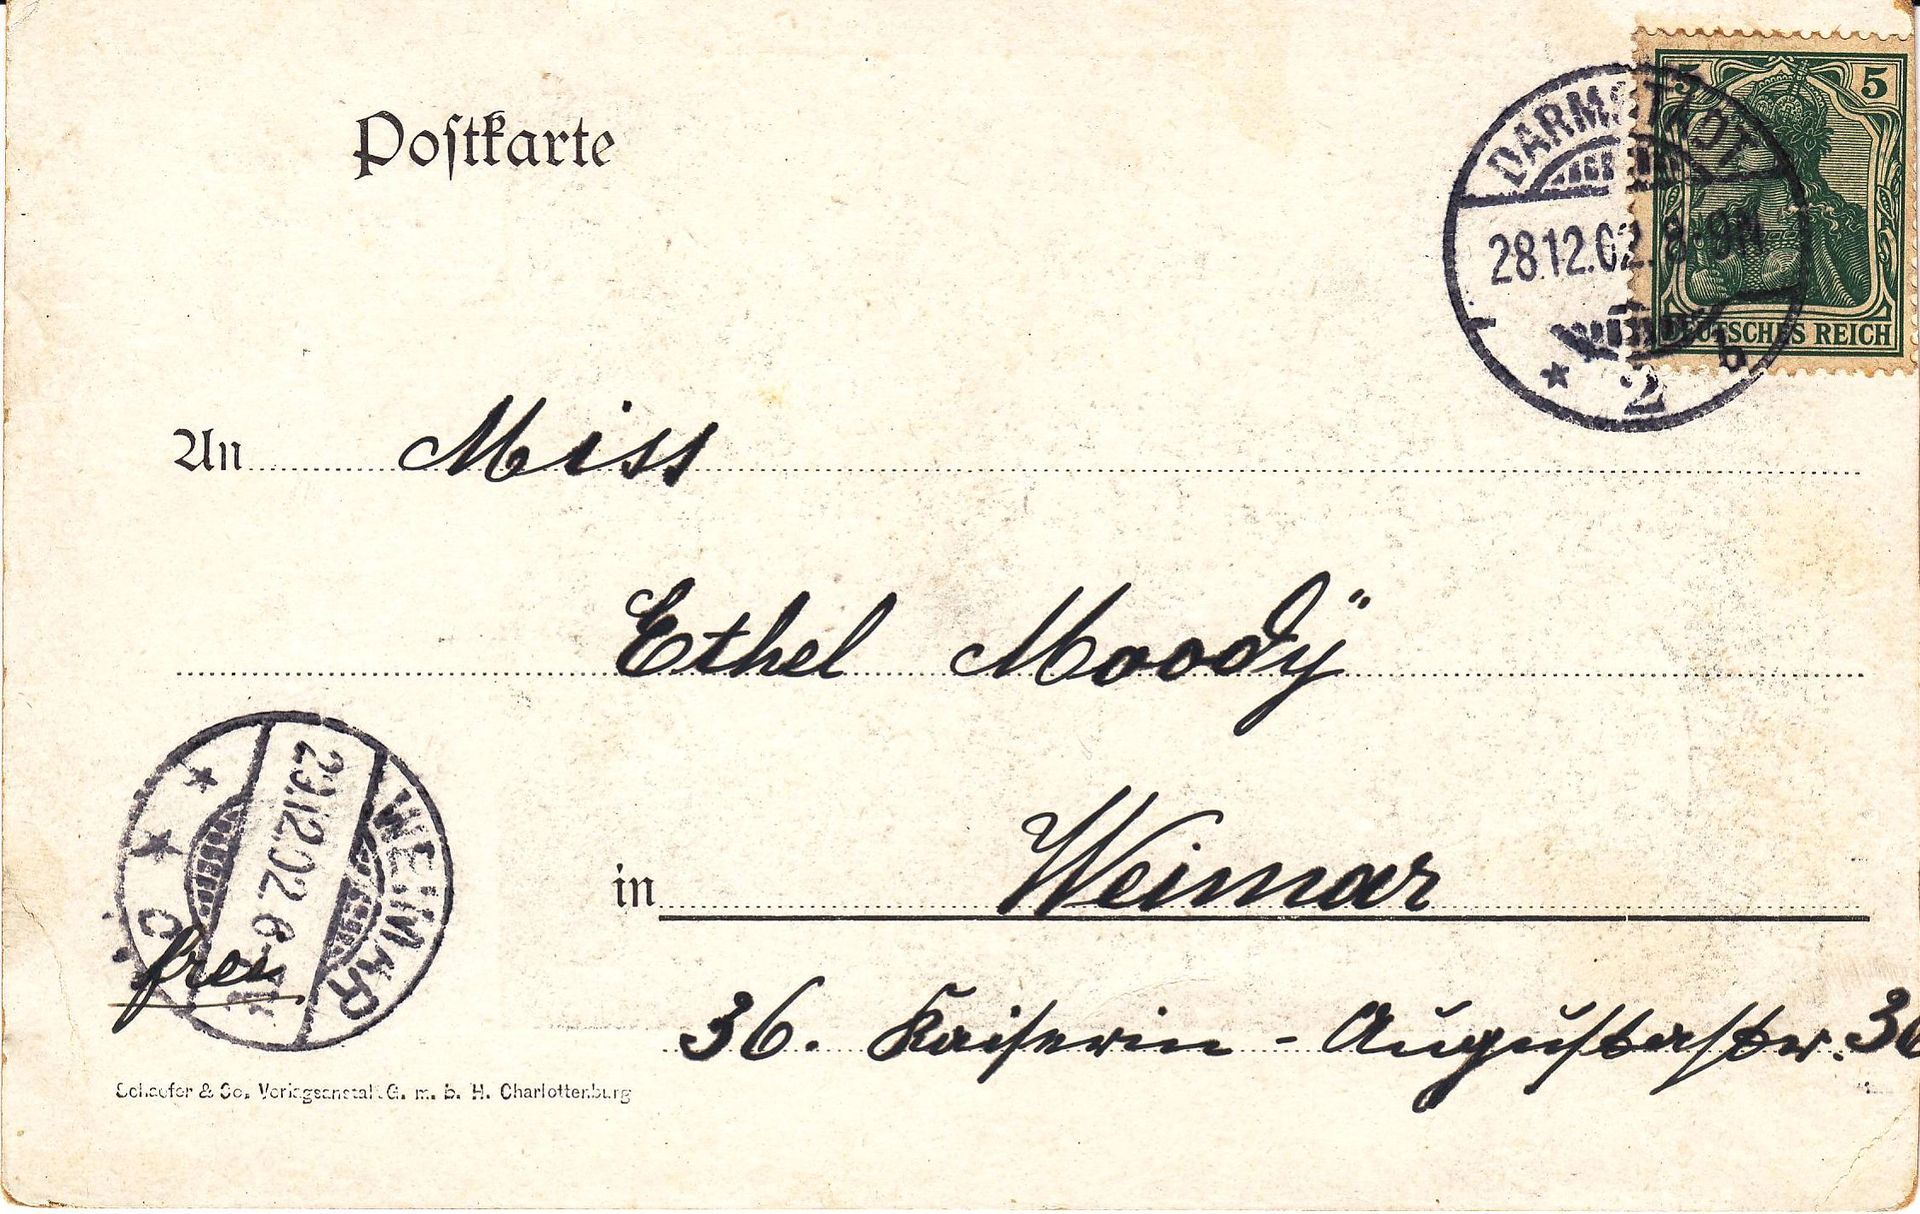 Postkarte
5 5
DEUTSCHES REICH
DARMSTADT
28.12.02. 8-9N
* 2 b
An Miss
Ethel Moodÿ
in Weimar
36. Kaiserin-Augustastr. 36
WEIMAR
29.12.02. 6-
* * C
frei
Schaefer & Co. Verlagsanstalt G. m. b. H. Charlottenburg